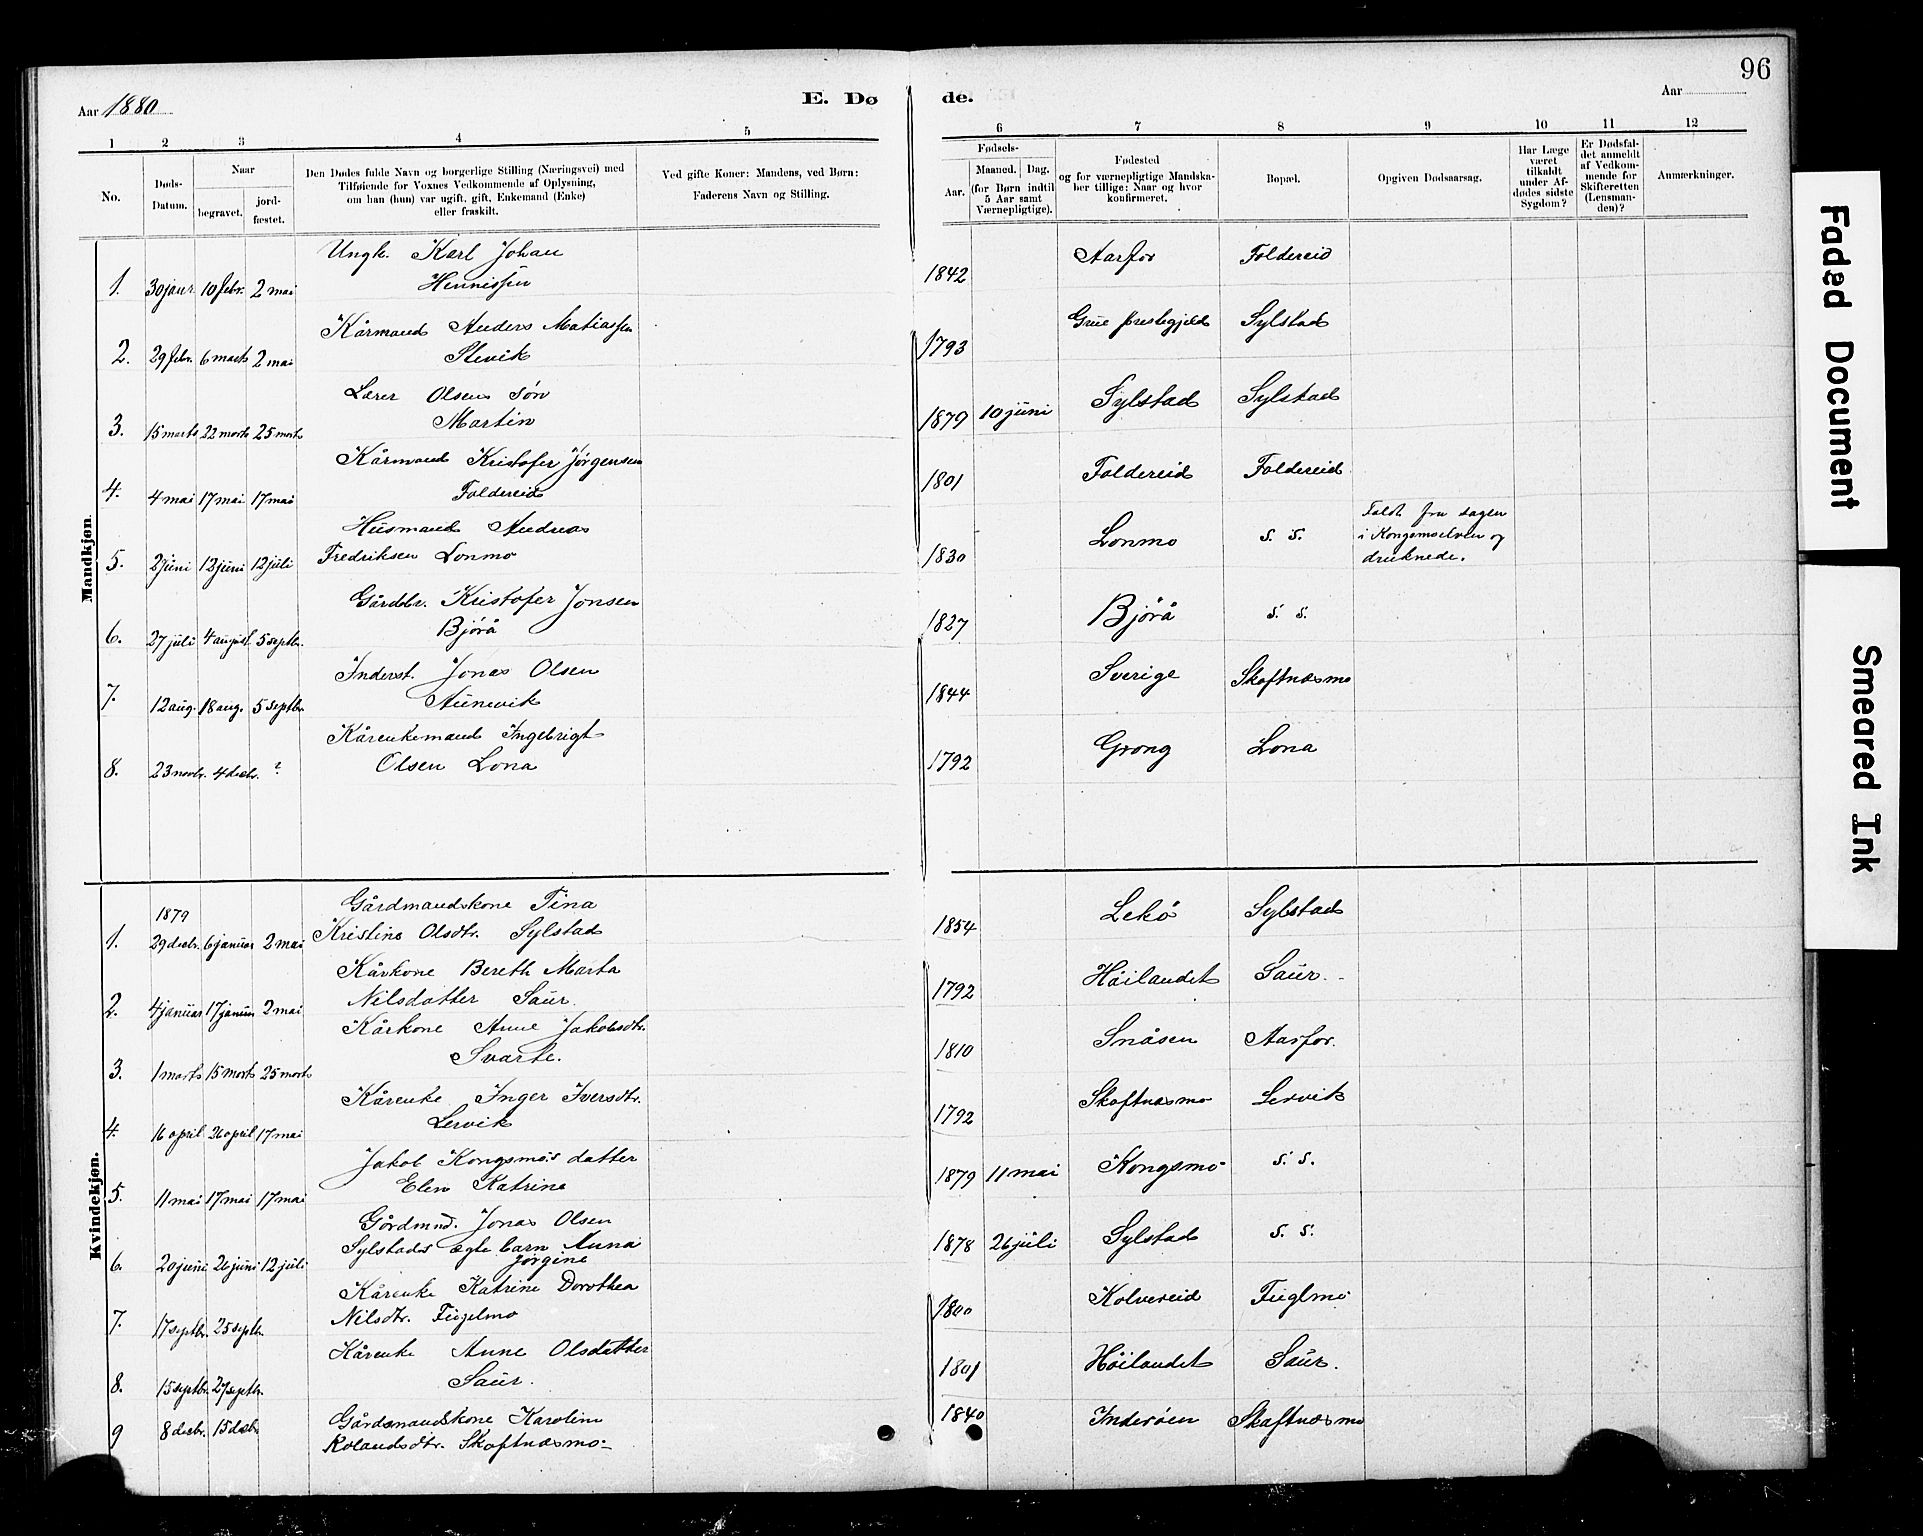 96
Aar 1880
E. Dø
de.
Aar
1 2 3 4 5 6 7 8 9 10 11 12
No.
Døds-Datum.
Naar
begravet.
jord-fæstet.
Den Dødes fulde Navn og borgerlige Stilling (Næringsvei) med
Tilføiende for Voxnes Vedkommende af Oplysning,
om han (hun) var ugift, gift, Enkemand (Enke)
eller fraskilt.
Ved gifte Koner: Mandens, ved Børn:
Faderens Navn og Stilling.
Fødsels-
Aar.
Maaned. Dag.
(for Børn indtil
5 Aar samt
Værnepligtige).
Fødested
og for værnepligtige Mandska-
ber tillige: Naar og hvor
konfirmeret.
Bopæl.
Opgiven Dødsaarsag.
Har Læge
været
tilkaldt
under Af-
dødes sidste
Sygdom?
Er Dødsfal-
det anmeldt
af Vedkom-
mende for
Skifteretten
(Lensman-
den)?
Anmærkninger.
Mandkjøn.
Ungk. Karl Johan
1. 30 janr. 10 febr. 2 mai Hennissen 1842 Aarfor Foldereid
Kårmand Anders Matiassen
2. 29 febr. 6 marts 2 mai Stevik 1793 Grue prestegjeld Sylstad
Lærer Olsens søn
3. 15 marts 22 marts 25 marts Martin 1879 10 juni Sylstad Sylstad
Kårmand Kristofer Jørgensen
4. 4 mai 17 mai 17 mai Foldereid 1801 Foldereid Foldereid
Husmand Andreas
5. 2 juni 12 juni 12 juli Fredriksen Lonmo 1830 Lonmo s. s.
Faldt fra sagen
i Kongsmoelven og
druknede.
Gårdbr. Kristofer Jonsen
6. 27 juli 4 august 5 septbr. Bjørå 1827 Bjørå s. s.
Inderst. Jonas Olsen
7. 12 aug. 18 aug. 5 septbr. Aunevik 1844 Sverige Skaftnæsmo
Kårenkemand Ingebrigt
8. 23 novbr. 4 decbr. ? Olsen Lona 1792 Grong Lona
Kvindekjøn.
1879 Gårdmandskone Tina
1. 29 decbr. 6 januar 2 mai Kristine Olsdtr. Sylstad 1854 Lekø Sylstad
Kårkone Bereth Marta
2. 4 januar 17 januar 2 mai Nilsdatter Saur. 1792 Høilandet Saur.
Kårkone Anne Jakobsdtr.
3. 1 marts 15 marts 25 marts Svarte. 1810 Snåsen Aarfor.
Kårenke Inger Iversdtr.
4. 16 april 26 april 17 mai Lervik 1792 Skaftnæsmo Lervik
Jakob Kongsmos datter
5. 11 mai 17 mai 17 mai Elen Katrine 1879 11 mai Kongsmo s. s.
Gårdmd. Jonas Olsen
Sylstads egte barn Anna
6. 20 juni 26 juni 12 juli Jørgine 1878 26 juli Sylstad s. s.
Kårenke Katrine Dorothea
7. 17 septbr. 25 septbr. Nilsdtr. Fuglmo 1800 Kolvereid Fuglmo
Kårenke Anne Olsdatter
8. 15 septbr. 27 septbr. Saur. 1801 Høilandet Saur.
Gårdsmandskone Karoline
9 8 decbr. 15 decbr. Rolandsdtr. Skaftnæsmo 1840 Inderøen Skaftnæsmo
Faded Document
Smeared Ink